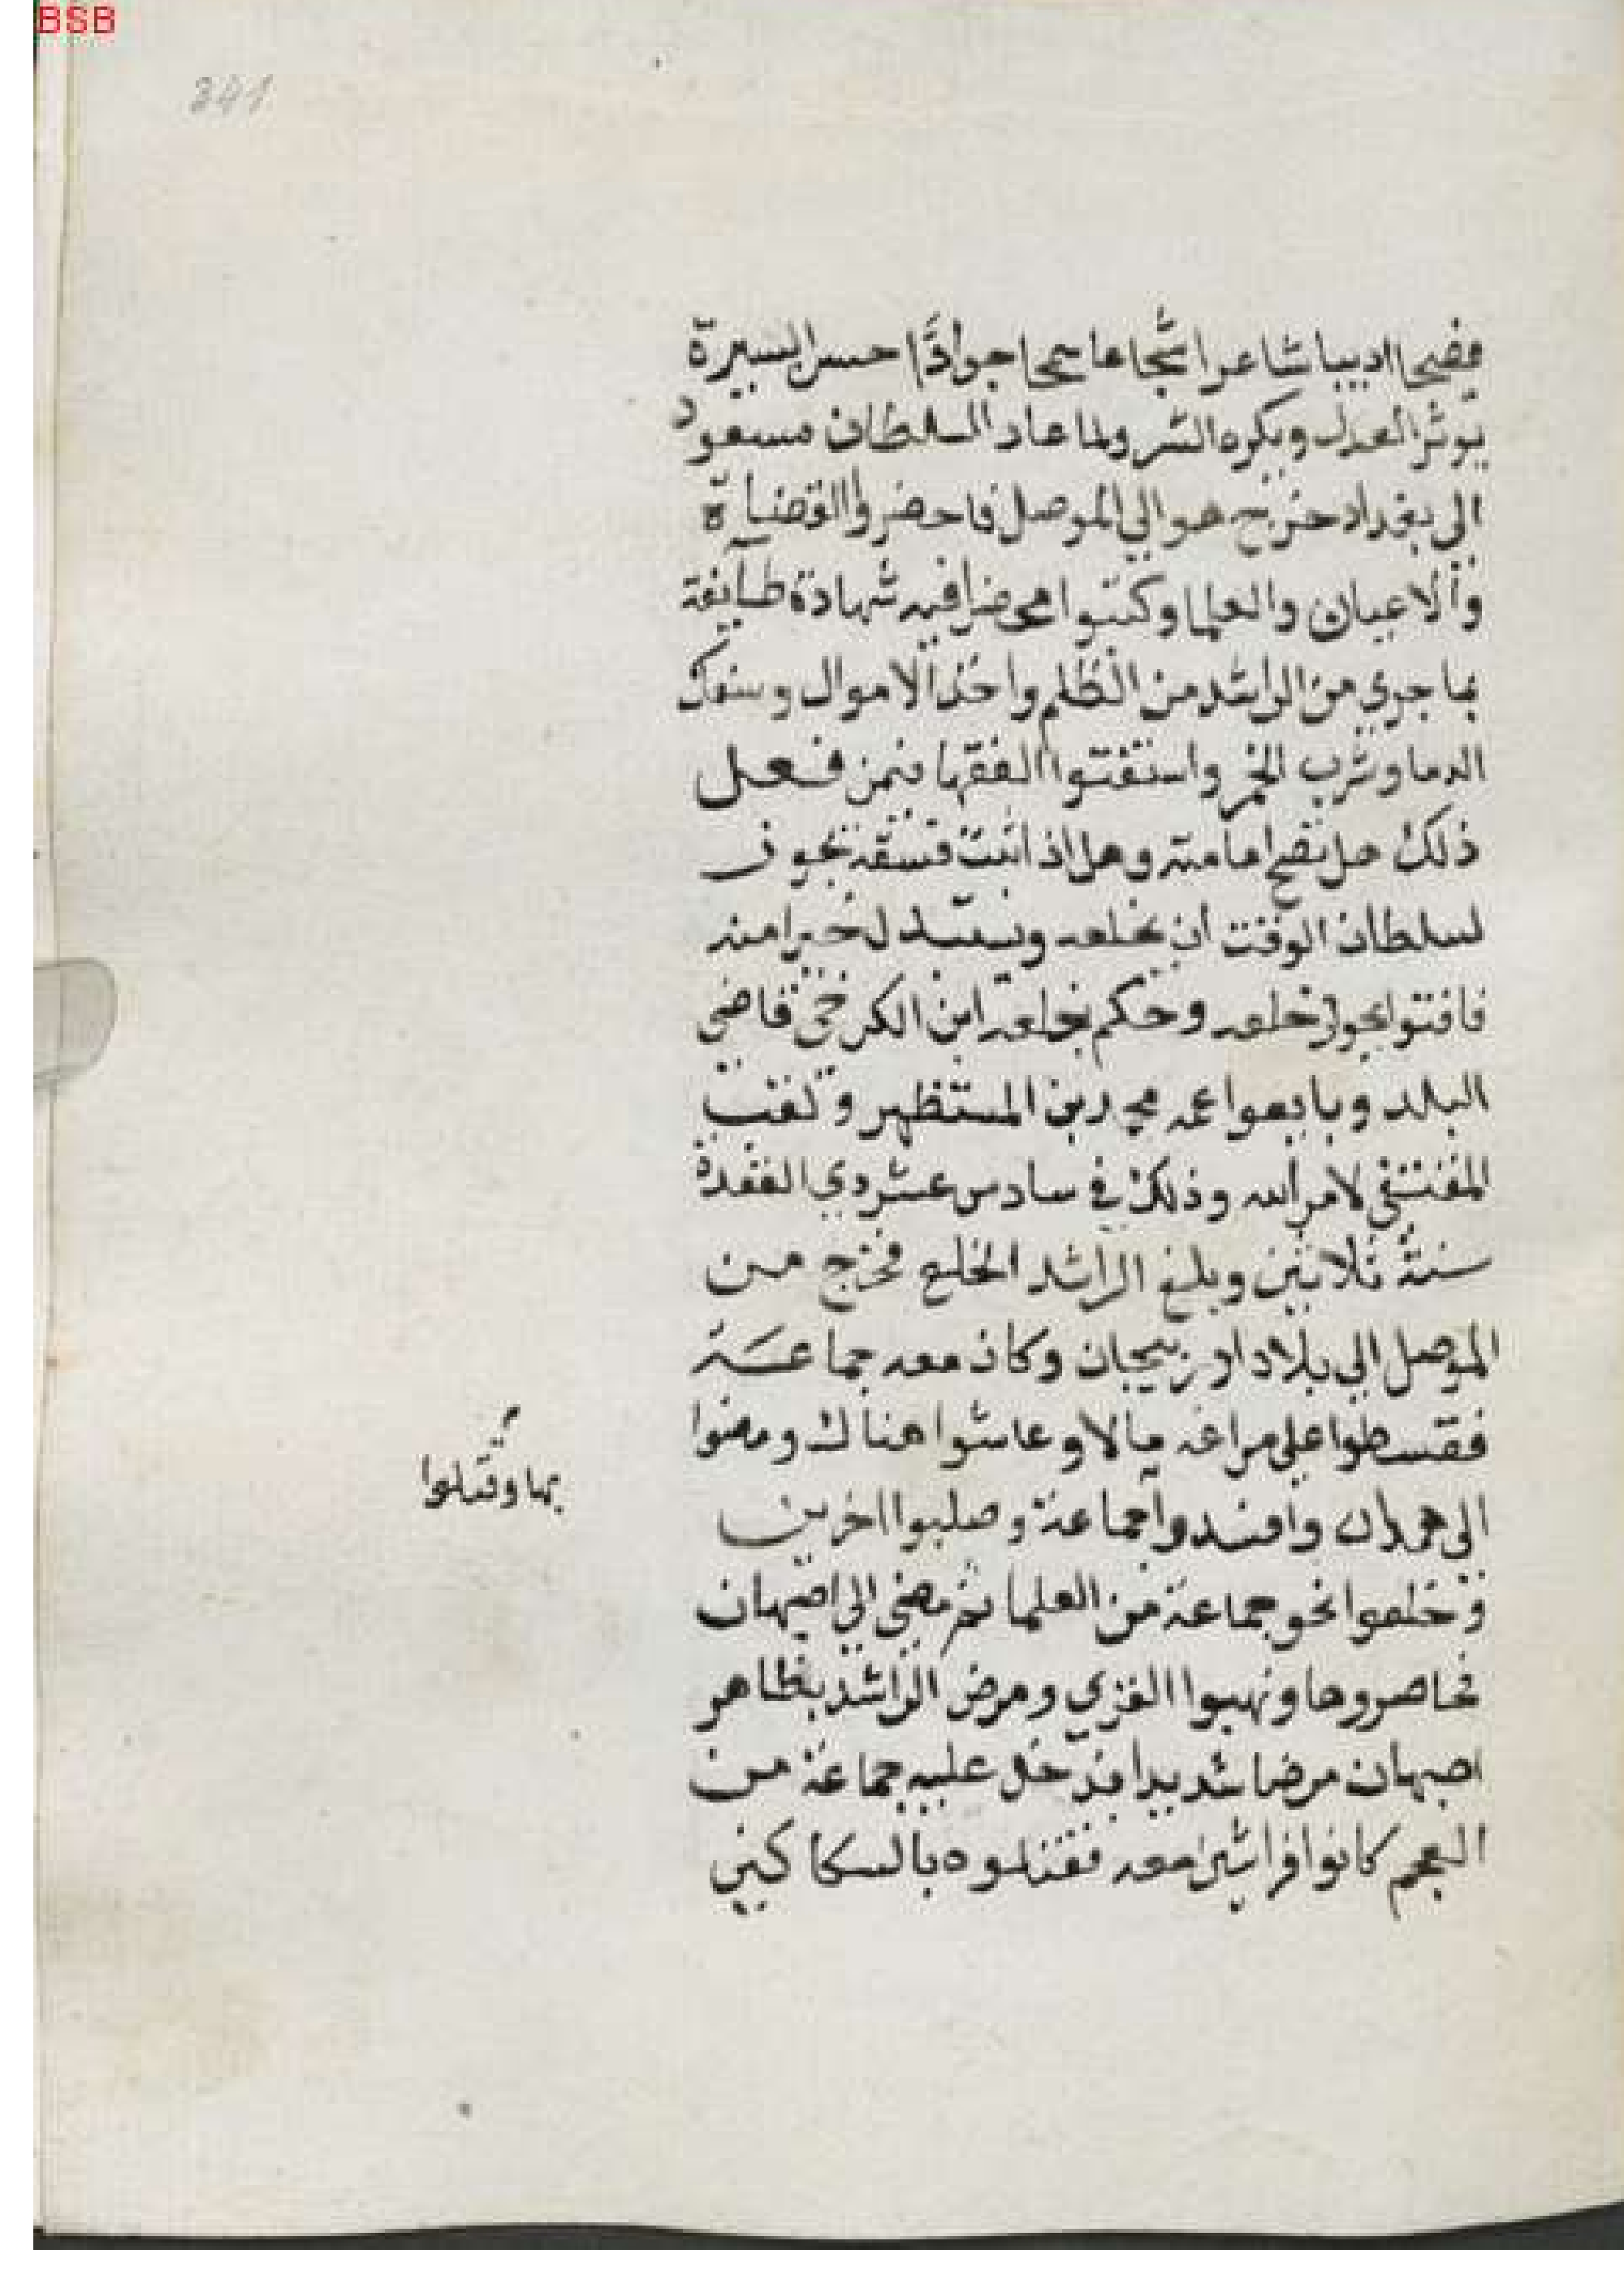 BSB
341
فصيحا اديبا شاعرا شجاعا سمحا جوادًا حسن السيرة
يوثر العدل ويكره الشر ولما عاد السلطان مسعود
الى بغداد خرج هو الي الموصل فاحضروا القضاة
والاعيان والعلما وكتبوا محضرا فيه شهادة طايفة
بما جري من الراشد من الظلم واخذ الاموال وسفك
الدما وشرب الخمر واستفتوا الفقها فيمن فعل
ذلك هل تصح امامته وهل اذا ثبت فسقه يجوز
لسلطان الوقت ان يخلعه ويستبدل خيرا منه
فافتوا بجواز خلعه وحكم بخلعه ابن الكرخي قاضي
البلد وبايعوا عمه محمد بن المستظهر ولقب
المقتفي لامر الله وذلك في سادس عشر ذي القعدة
سنة ثلاثين وبلغ الراشد الخلع فخرج من
الموصل الي بلاد اذربيجان وكان معه جماعة
فقسطوا علي مراغه مالا وعاثوا هناك ومضوا
الى همدان وافسدوا
بها وقتلوا
جماعة وصلبوا اخرين
وحلقوا نحو جماعة من العلما ثم مضي الي اصبهان
فحاصروها ونهبوا القري ومرض الراشد بظاهر
اصبهان مرضا شديدا فدخل عليه جماعة من
العجم كانوا فراشين معه فقتلوه بالسكاكين